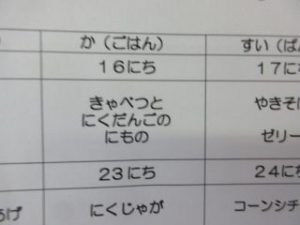 か（ごはん） すい（ぱ
16にち 17にち
きゃべつと
にくだんごの
にもの
やきそば
ゼリー
23にち 24にち
にくじゃが コーンシチ